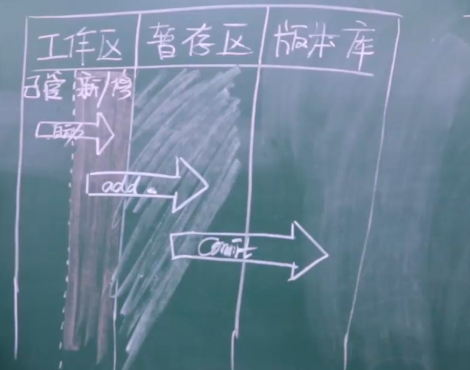 工作区 暂存区 版本库
已管 新/修
add .
commit